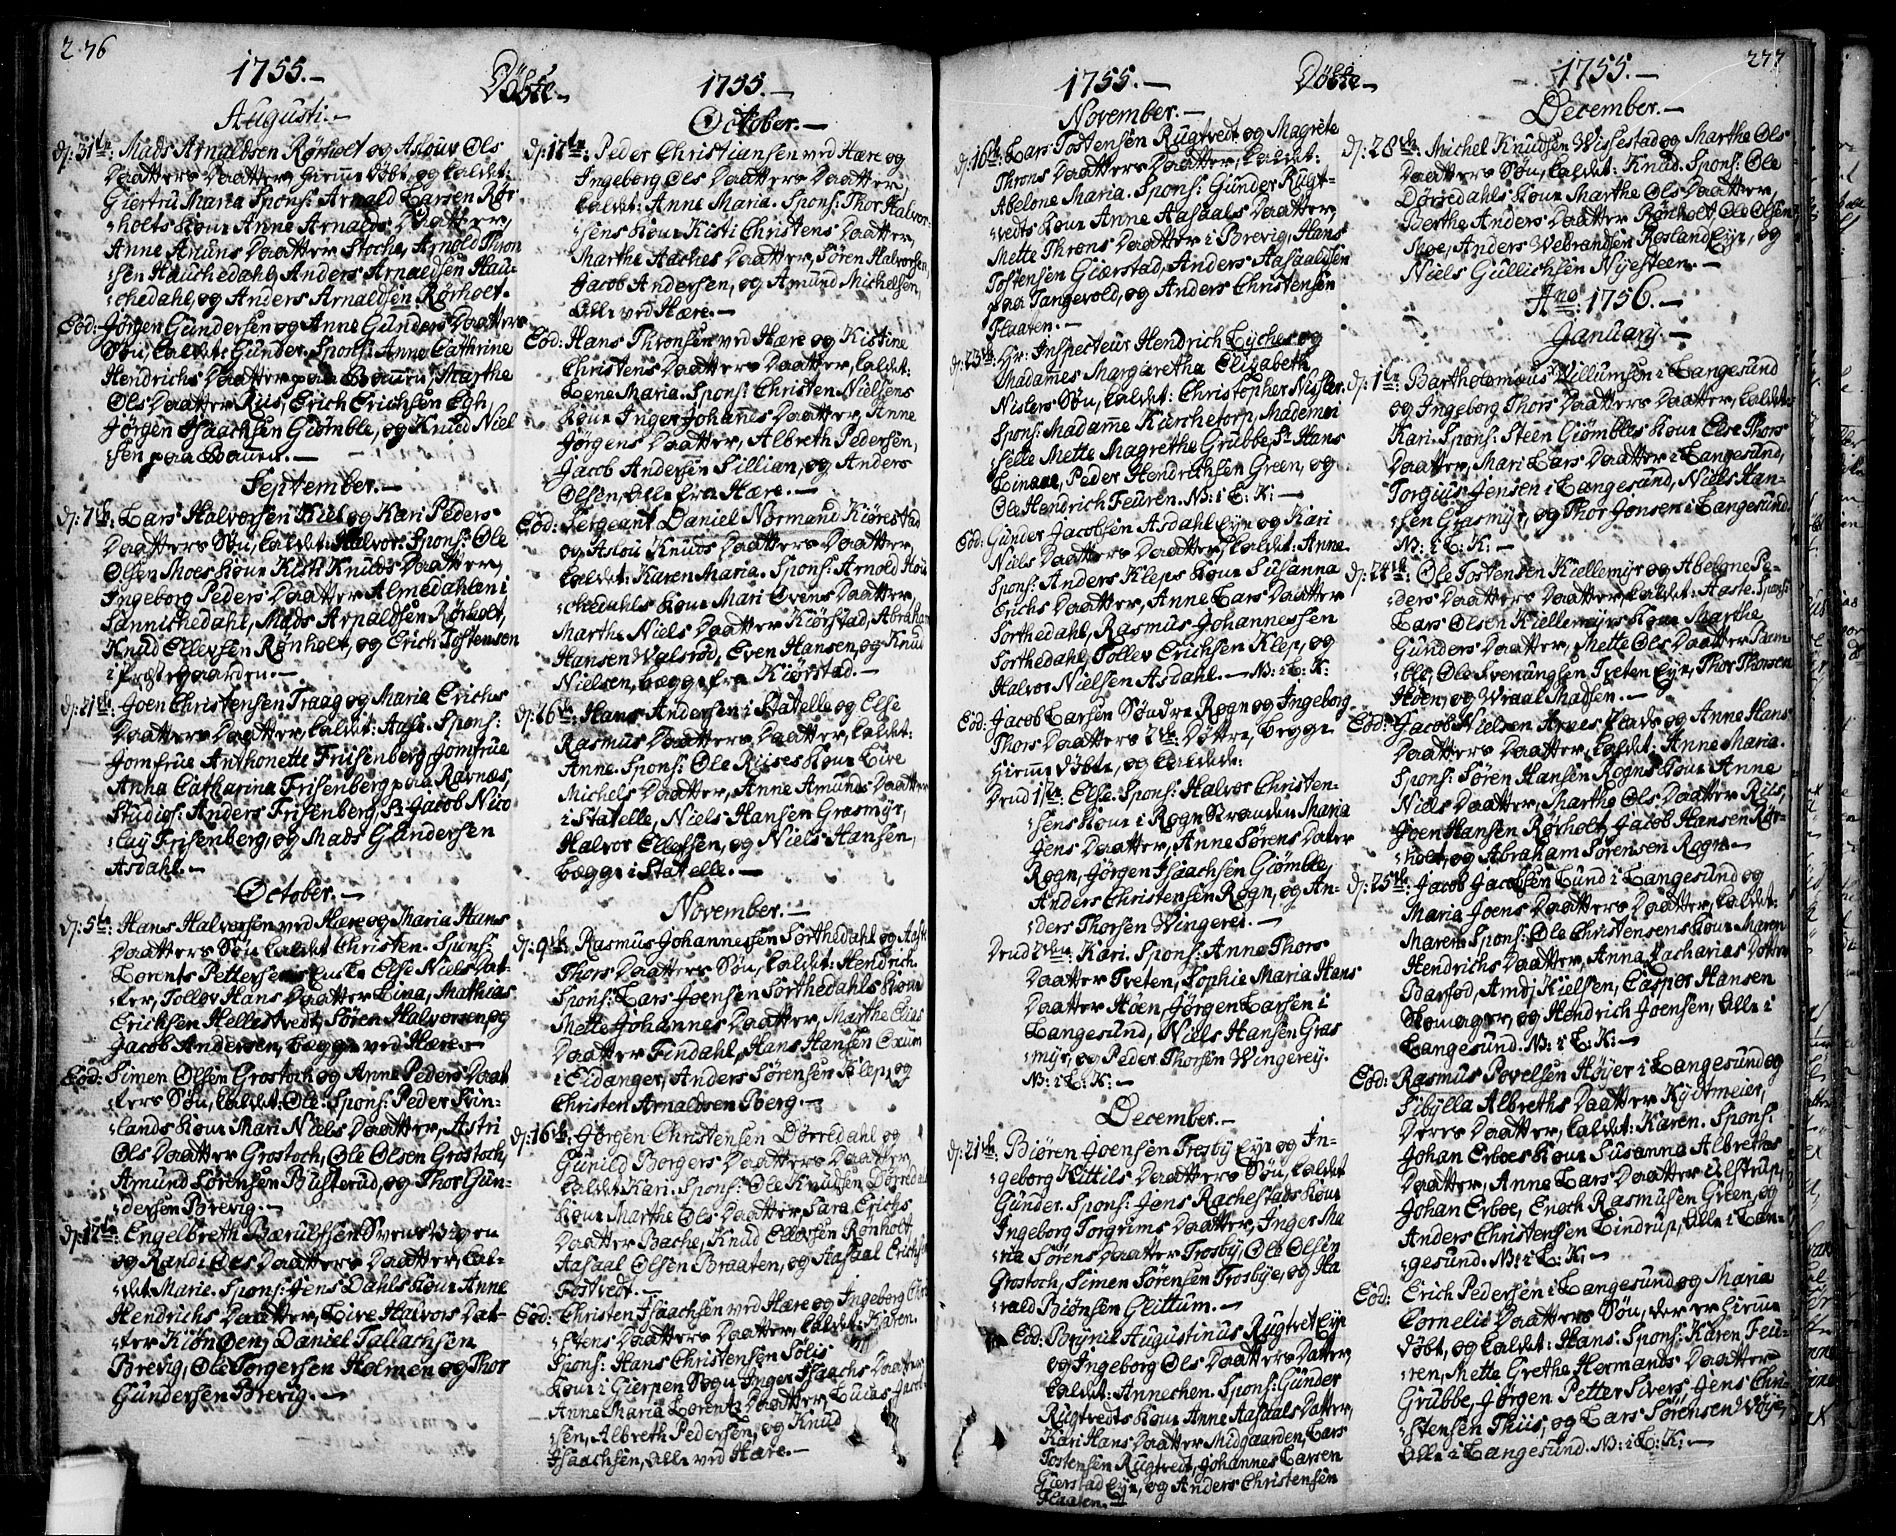 276
1755.
Döbte
Augusti.
dj: 31te: Mads Arnaldsen Rørholt og Aslouv Ols
Daatters Daatter, hiemme døbt, og kaldet:
Giertrü Maria Spons: Arnald Larsen Rør
holts Koue Anne Arnalds Daatter,
Anne Amuns Daatter Stoche, Arnold Thron
sen Hauchedahl, Anders Arnaldsen Hau-
chedahl, og Anders Arnaldsen Rørholt.
Eod: Jørgen Gundersen og Anne Gunders Daatters
Søn, kaldet: Gunder. Spons: Anne Cathrine
Hendrichs Daatter paa Bouen, Marthe
Ols Daatter Riis, Erich Erichsen Egh,
Jørgen Isaachsen Giømble, og Knud Niel
sen paa Bouen.
September.
dj: 7de: Lars Halvorsen Kiel og Kari Peders
Daatters Søn, kaldet: Halvor. Spons: Ole
Olsen Moes Koue Kisti Knuds Daatter,
Ingeborg Peders Daatter Almedahlen i
Sannikedahl, Mads Arnaldsen Rørholt,
Knud Ellevsen Rønholt, og Erich Tostenson
i Præstegaarden.
dj: 21de: Joen Christensen Traag og Maria Erichs
Daatters Daatter, kaldet: Aase. Spons:
Jomfrue Anthonette Frisenberg, Jomfrue
Anna Catharina Frisenberg paa Ravnæs,
Studios: Anders Frisenberg, Sr Jacob Nico
lay Frisenberg, og Mads Gundersen
Asdahl.
October.
dj: 5te: Hans Halvorsen ved Hære og Maria Hans
Daatters Søn kaldet Christen. Spons:
Lorents Pettersens Enke Else Niels Dat-
ter, Tollov Hans Daatter Lina, Mathias
Erichsen Hellestvedt, Søren Halvorsen, og
Jacob Andersen, begge ved Hære.
Eod: Simen Olsen Grostoch og Anne Peders Daat
ters Søn, kaldet: Ole. Spons: Peder Fin-
lands Koue Mari Niels Daatter, Astri
Ols Daatter Grostoch, Ole Olsen Grostoch,
Amund Sørensen Busterud, og Thor Gun-
dersen Brevig.
dj: 12te: Engelbreth Bærulfsen Svensvigen
og Randi Ols Daatters Daatter, kal-
det Marie. Spons: Jens Dahls Koue Anne
Hendrichs Daatter, Live Halvors Dat-
ter Kiøn Oen, Daniel Tallachsen
Brevig, Ole Torgersen Holmen og Thor
Gundersen Brevig.
1755.
October.
dj: 12te: Peder Christiansen ved Hære og
Ingeborg Ols Daatters Daatter,
kaldet: Anne Maria. Spons: Thor Halvor-
sens Koue Kisti Christens Daatter,
Marthe Aaches Daatter, Søren Halvorsen,
Jacob Andersen, og Amund Michelsen,
Alle ved Hære.
Eod: Hans Thronsen ved Hære og Kistine
Christens Daatters Daatter, kaldet:
Lene Maria. Spons: Christen Nielsens
Koue Inger Johanis Daatter, Anne
Jørgens Daatter, Albreth Pedersen,
Jacob Andersen Lillian, og Anders
Olsen, alle fra Hære.
Eod: Sergeant Daniel Normand Kiørestad
og Aslou Knuds Daatters Daatter
kaldet: Karen Maria. Spons: Arnold Hou
chedahls Koue Mari Evens Daatter,
Marthe Niels Daatter Kiørstad, Abraham
Hansen Valsrød, Even Hansen, og Knud
Nielsen, begge fra Kiørstad.
dj: 26de: Hans Andersen i Statelle og Else
Rasmus Daatters Daatter, kaldet:
Anne. Spons: Ole Riises Koue Live
Michels Daatter, Anne Amunds Daatter
i Statelle, Niels Hansen Grasmyr,
Halvor Ellefsen, og Niels Hansen,
begge i Statelle.
November.
dj: 9de: Rasmus Johannessen Sorthedahl og Aase
Thors Daatters Søn, kaldet: Hendrich.
Spons: Lars Joensen Sorthedahls Koue
Mette Johannes Daatter, Marthe Elias
Daatter Findahl, Hans Hansen Oxum
i Eidanger, Anders Sørensen Klep, og
Christen Arnaldsen Berg.
dj: 16de: Jørgen Christensen Dørredahl og
Gunild Borgers Daatters Daatter,
kaldet Kari. Spons: Ole Knudsen Dørredals
Koue Marthe Ols Daatter, Sara Erichs
Daatter Bache, Knud Ellevsen Rønholt
Aasaal Olsen Braaten, og Aasaal Erichsen
Tostvedt.
Eod: Christen Isaachsen ved Hære og Ingeborg Chri
stens Daatters Daatter, kaldet: Karen.
Spons: Hans Christensen Solis
Koue i Gierpen Sogn Inger Isaachs Daatter,
Anne Maria Lorentz Daatter, Lucas Jacob-
sen, Albreth Pedersen, og Knud
Isaachsen, alle ved Hære.
277
1755.
Döbte
November.
dj: 16de: Lars Tostensen Rugtvedt og Magrete
Throns Daatters Daatter, kaldet:
Abelone Maria. Spons: Gunder Rugt-
vedts Koue Anne Aasaals Daatter,
Mette Throns Daatter i Brevig, Hans
Tostensen Giærstad, Anders Aasaaldsen
paa Tangevold, og Anders Christensen
Flaaten.
dj: 23de: Hr: Inspecteur Hendrich Lyches og
Madames Margaretha Elizabeth
Nislers Søn, kaldet: Christopher Nisler.
Spons: Madame Kierchetorp, Mademoi
selle Mette Magrethe Grubbe, Sr Hans
Linaae, Peder Hendrichsen Green, og
Ole Hendrich Feuren. N: i L: K:
Eod: Gunder Jacobsen Asdahl Eye og Kari
Niels Daatters Daatter, kaldet: Anne.
Spons: Anders Kleps Koue Susanna
Erichs Daatter, Anne Lars Daatter
Sorthedahl, Rasmus Johannessen
Sorthedahl, Tollev Erichsen Klep, og
Halvor Nielsen Asdahl. N: i L: K:
Eod: Jacob Larsen Søndre Rogn og Ingeborg
Thors Daatters 2de: Døttre, begge
hiemme døbte, og kaldede:
Dend 1ste: Else. Spons: Halvor Christen-
sens Koue i Rogn Stranden Maria
Jens Daatter, Anne Sørens Dater
Rogn, Jørgen Isaachsen Giømble,
Anders Christensen Rogn, og An-
ders Thorsen Wingerei.
Dend 2den: Kari. Spons: Anne Thors
Daatter Treten, Sophie Maria Hans
Daatter Høen, Jørgen Larsen i
Langesund, Niels Hansen Gras
myr, og Peder Thorsen Wingerey.
N: i L: K:
December.
dj: 21de: Biøren Joensen Trosby Eye og In-
geborg Kittils Daatters Søn, kaldet
Gunder. Spons: Jens Rachestads Koue
Ingeborg Torgrims Daatter, Inger Ma
ria Sørens Daatter Trosby, Ole Olsen
Grostoch, Simen Sørensen Trosbye, og Ha
rald Biønsen Glittum.
Eod: Brynil Augustinus Rugtvet Eye
og Ingeborg Ols Daatters Datter,
kaldet: Annechen. Spons: Gunder
Rugtvedts Koue Anne Aasaals Datter,
Kari Hans Daatter Midgaarden, Lars
Tostensen Rugtvedt, Johannes Larsen
Gierstad Eye, og Anders Christensen
Flaaten.
1755.
December.
dj: 28de: Michel Knudsen Wissestad og Marthe Ols
Daatters Søn, kaldet: Knud. Spons: Ole
Dørredahls Koue Marthe Ols Daatter,
Berthe Anders Daatter Rønholt, Ole Olsen
Moe, Anders Webrandsen Rosland Eye, og
Niels Gullichsen Nyesteen.
Ano: 1756.
Januarij.
dj: 1te: Bartholomæus Willumsen i Langesund
og Ingeborg Thors Daatters Daatter, kaldet:
Kari. Spons: Steen Giømbles Koue Else Thors
Daatter, Mari Lars Daatter i Langesund,
Torgius Jensen i Langesund, Niels Han-
sen Grasmyr, og Thor Jonsen i Langesund.
N: i L: K:
dj: 24de: Ole Tostensen Kiellemyr og Abelone Pe-
ders Daatters Daatter, kaldet: Aaste. Spons:
Lars Olsen Kiellemyrs Koue Marthe
Gunders Daatter, Mette Ols Daatter Bam-
ble, Ole Svenungsen Treten Eye, Thor Thorsen
Høen, og Wraal Madsen.
Eod: Jacob Nielsen Arnes Plads og Anne Hans
Daatters Daatter, kaldet: Anne Maria.
Spons: Søren Hansen Rogns Koue Anne
Niels Daatter, Marthe Ols Daatter Riis,
Joen Hansen Rørholt, Jacob Hansen Rør-
holt, og Abraham Sørensen Rogn.
dj: 25de: Jacob Jacobsen Lund i Langesund og
Maria Joens Daatters Daatter, kaldet:
Maren. Spons: Ole Christensens Koue Maren
Hendrichs Daatter, Anna Zacharias Datter
Barfod, Amdj Kielsen, Casper Hansen
Skomager, og Hendrich Joensen, Alle i
Langesund. N: i L: K:
Eod: Rasmus Povelsen Høyer i Langesund og
Sibylla Albreths Daatter Kydtmeier,
Deres Daatter, kaldet: Karen. Spons:
Johan Erboes Koue Susanna Albreths
Daatter, Anne Lars Daatter Ulstrup,
Johan Erboe, Enoch Rasmusen Green, og
Anders Christensen Lindrup, Alle i Lan-
gesund. N: i L: K:
Eod: Erich Pedersen i Langesund og Maria
Cornelii Daatters Søn, der er hiemme
døbt, og kaldet: Hans. Spons: Karen Feu-
ren, Mette Grethe Hermands Daatter
Grubbe, Jørgen Petter Sivers, Jens Chri-
stensen Thiis, og Lars Sørensen Wøye,
Alle i Langesund. N: i L: K: